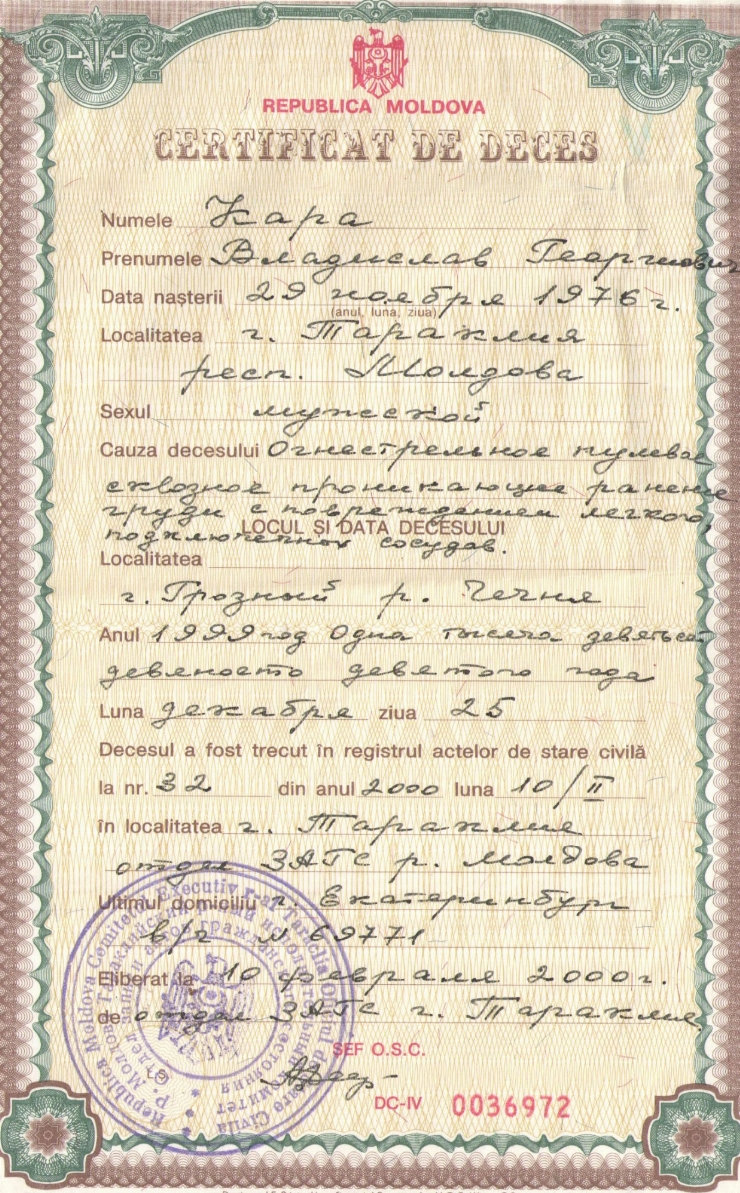 REPUBLICA MOLDOVA
CERTIFICAT DE DECES
Numele Кара
Prenumele Владислав Георгиевич
Data nașterii 29 ноября 1976 г.
(anul, luna, ziua)
Localitatea г. Тараклия
респ. Молдова
Sexul мужской
Cauza decesului Огнестрельное пулевое
сквозное проникающие ранение
груди с повреждением легкого,
LOCUL ȘI DATA DECESULUI
подключечных сосудав.
Localitatea
г. Грозный р. Чечня
Anul 1999 год Одна тысяча девятьсот
девяносто девятого года
Luna декабря ziua 25
Decesul a fost trecut în registrul actelor de stare civilă
la nr. 32 din anul 2000 luna 10/II
în localitatea г. Тараклия
отдел ЗАГС р. Молдова
Ultimul domiciliu г. Екатеринбург
в/ч N 69771
Eliberat la 10 февраля 2000 г.
de отдел ЗАГС г. Тараклия
ȘEF O.S.C.
DC-IV 0036972
Republica Moldova Comitetul Executiv